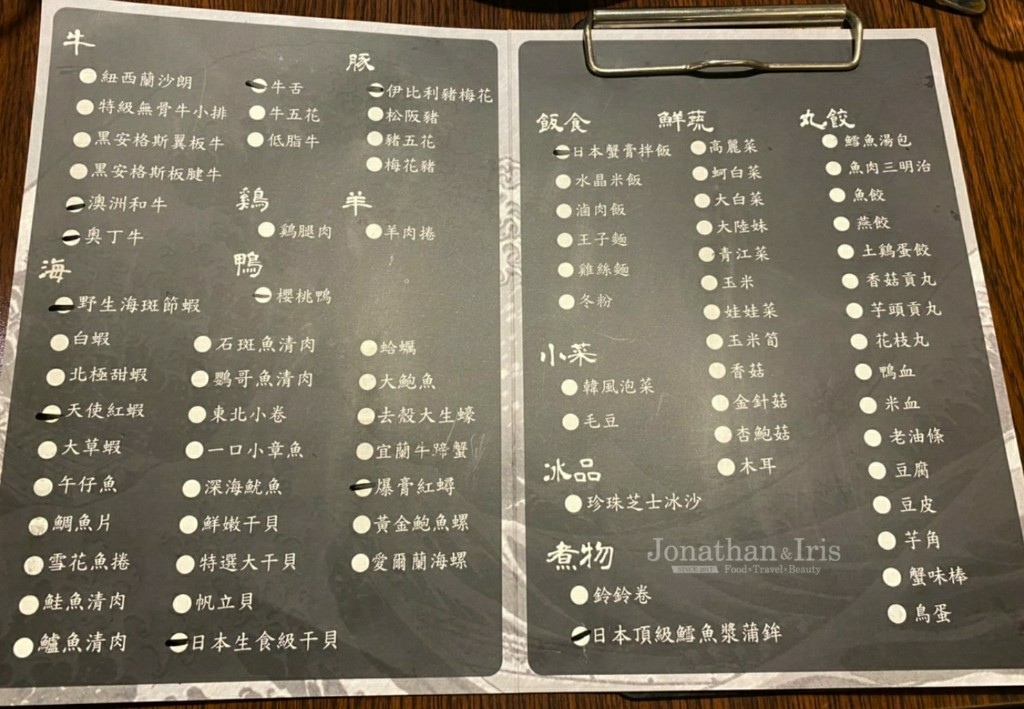 牛
紐西蘭沙朗
特級無骨牛小排
黑安格斯翼板牛
黑安格斯板腱牛
澳洲和牛
奧丁牛
牛舌
牛五花
低脂牛
豚
伊比利豬梅花
松阪豬
豬五花
梅花豬
鷄
鷄腿肉
羊
羊肉捲
鴨
櫻桃鴨
海
野生海斑節蝦
白蝦
北極甜蝦
天使紅蝦
大草蝦
午仔魚
鯛魚片
雪花魚捲
鮭魚清肉
鱸魚清肉
石斑魚清肉
鸚哥魚清肉
東北小卷
一口小章魚
深海魷魚
鮮嫩干貝
特選大干貝
帆立貝
日本生食級干貝
蛤蠣
大鮑魚
去殼大生蠔
宜蘭牛蹄蟹
爆膏紅蟳
黃金鮑魚螺
愛爾蘭海螺
飯食
日本蟹膏拌飯
水晶米飯
滷肉飯
王子麵
雞絲麵
冬粉
小菜
韓風泡菜
毛豆
冰品
珍珠芝士冰沙
煮物
鈴鈴卷
日本頂級鱈魚漿蒲鉾
鮮蔬
高麗菜
蚵白菜
大白菜
大陸妹
青江菜
玉米
娃娃菜
玉米筍
香菇
金針菇
杏鮑菇
木耳
丸餃
鱈魚湯包
魚肉三明治
魚餃
燕餃
土鷄蛋餃
香菇貢丸
芋頭貢丸
花枝丸
鴨血
米血
老油條
豆腐
豆皮
芋角
蟹味棒
鳥蛋
Jonathan & Iris
SINCE 2012 Food•Travel•Beauty